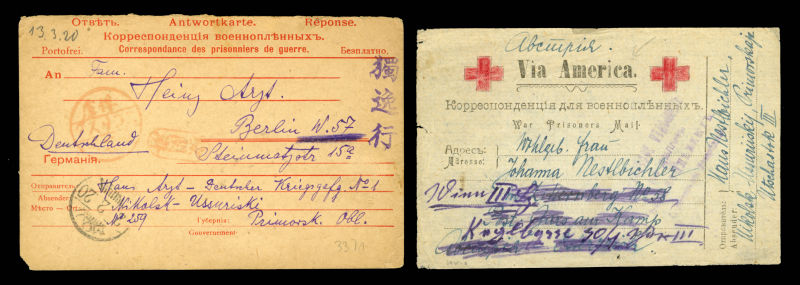 13.3.20
Отвѣтъ. Antwortkarte. Réponse.
Корреспонденція военноплѣнныхъ.
Portofrei. Correspondance des prisonniers de guerre. Безплатно.
An Fam.
Heinz Arzt.
Berlin W. 57
Steinmetzstr 15a
Deutschland
Германія.
獨逸行
Отправитель: Hans Arzt - Deutscher Kriegsgefg. № 1
Absender:
Nikolsk-Ussuriski
Мѣсто - Ort:
№ 259 Губернія: Primorsk. Obl.
Gouvernement:
3371
Австрія.
Via America.
Корреспонденція для военноплѣнныхъ.
War Prisoners Mail.
Адресъ: Wohlgeb. Frau
Adresse:
Johanna Nestlbichler
Wien III
Kamp
Kugelgasse III
Отправитель:
Absender:
Hans Nestlbichler
Nikolsk Ussuriskij Primorskaja